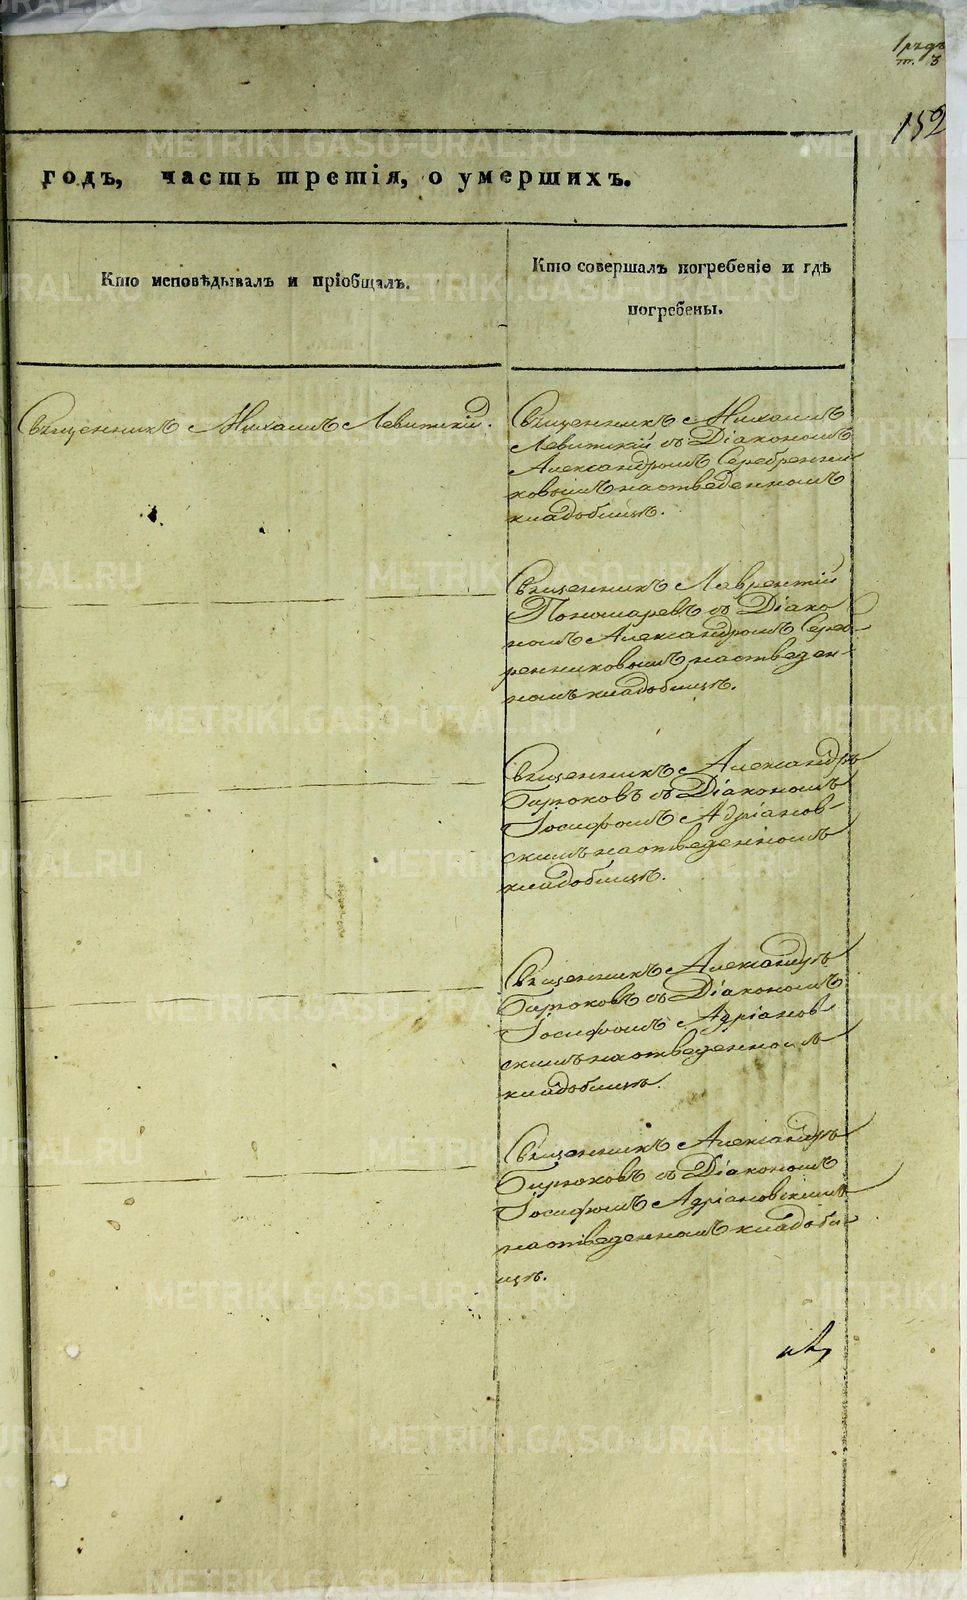 152
годъ, часть третія, о умершихъ.
Кто исповѣдывалъ и пріобщалъ.
Кто совершалъ погребеніе и гдѣ
погребены.
Священникъ Михаилъ Левитскій.
Священникъ Михаилъ
Левитскій съ Діакономъ
Александромъ Серебренни
ковымъ на отведенномъ
кладбищѣ.
Священникъ Лаврентій
Пономаревъ съ Діако
номъ Александромъ Сереб-
ренниковымъ на отведен-
номъ кладбищѣ.
Священникъ Александръ
Бирюковъ съ Діакономъ
Іосифомъ Адріанов-
скимъ на отведенномъ
кладбищѣ.
Священникъ Александръ
Бирюковъ съ Діакономъ
Іосифомъ Адріанов-
скимъ на отведенномъ
кладбищѣ.
Священникъ Александръ
Бирюковъ съ Діакономъ
Іосифомъ Адріановскимъ
на отведенномъ кладби-
щѣ.
METRIKI.GASO-URAL.RU